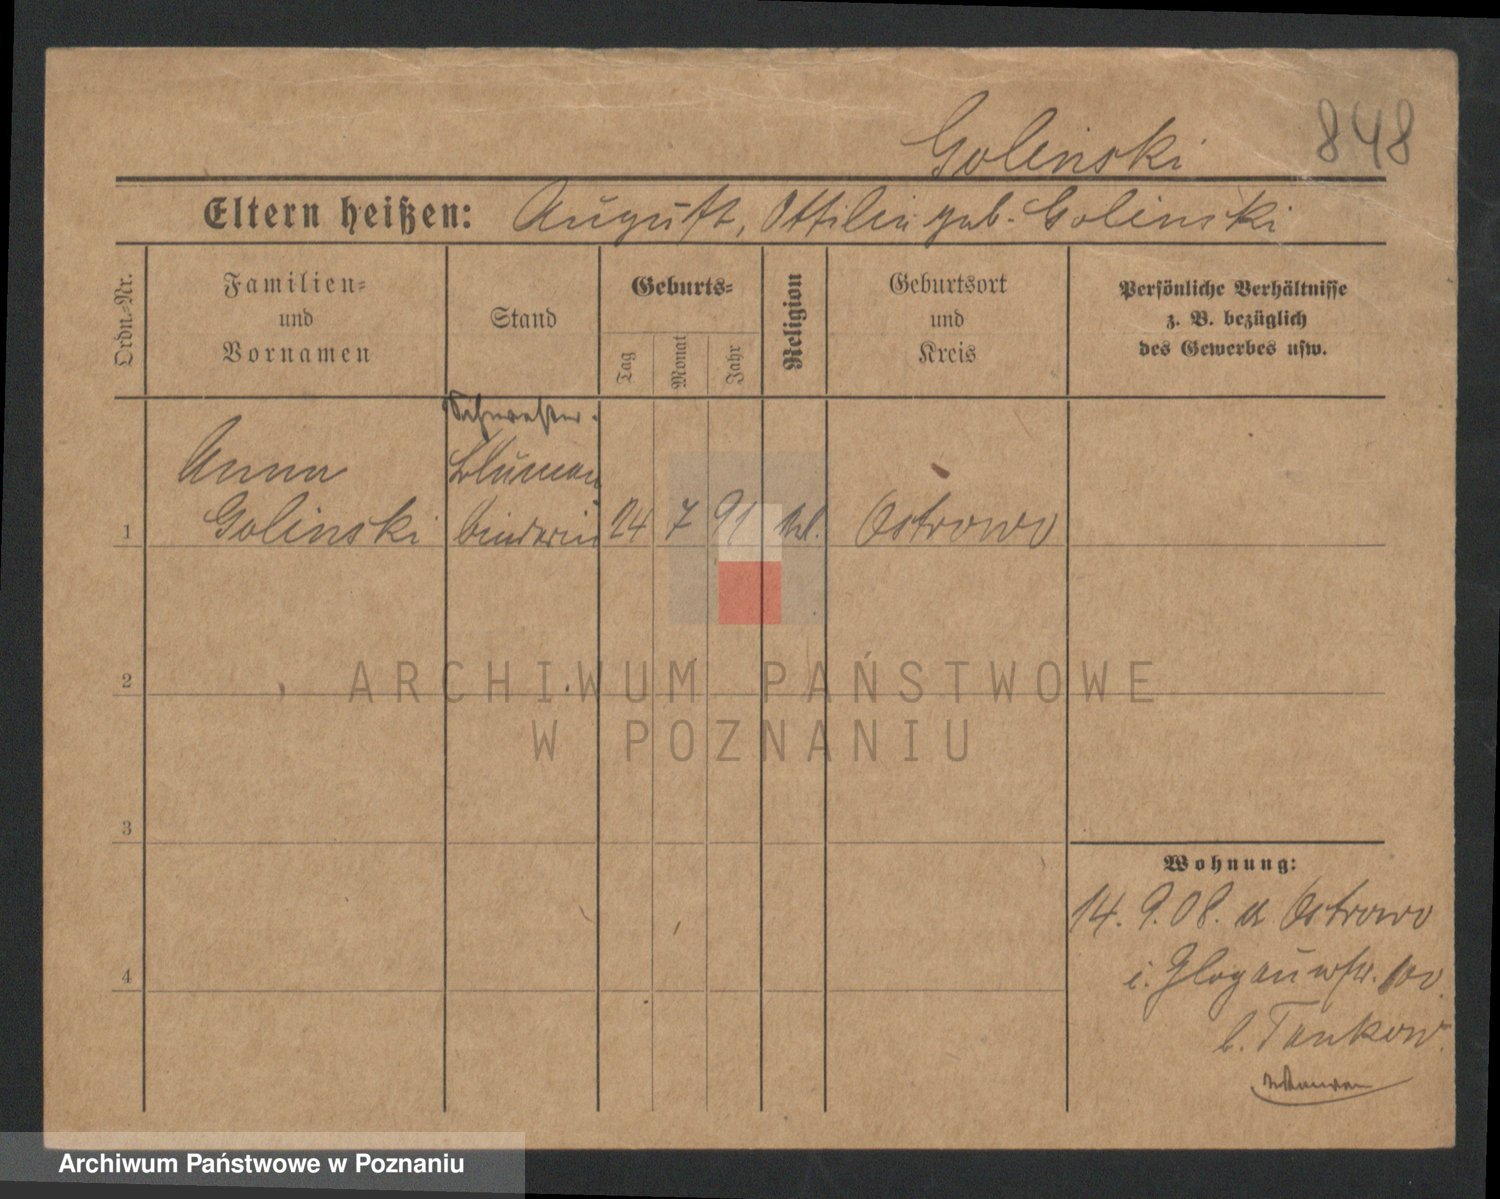 Golinski
848
Eltern heißen: August, Ottilie geb. Golinski
Ordn.-Nr.
Familien-
und
Vornamen
Stand
Geburts-
Tag
Monat
Jahr
Religion
Geburtsort
und
Kreis
Persönliche Verhältnisse
z. B. bezüglich
des Gewerbes usw.
Schwester
Anna
Golinski
Blumen
binderin
1
24 7 91 kl. Ostrowo
2
3
4
ARCHIWUM PAŃSTWOWE
W POZNANIU
Wohnung:
14. 9. 08. a Ostrowo
i. Glogauerstr. 100
b. Tankow.
Archiwum Państwowe w Poznaniu